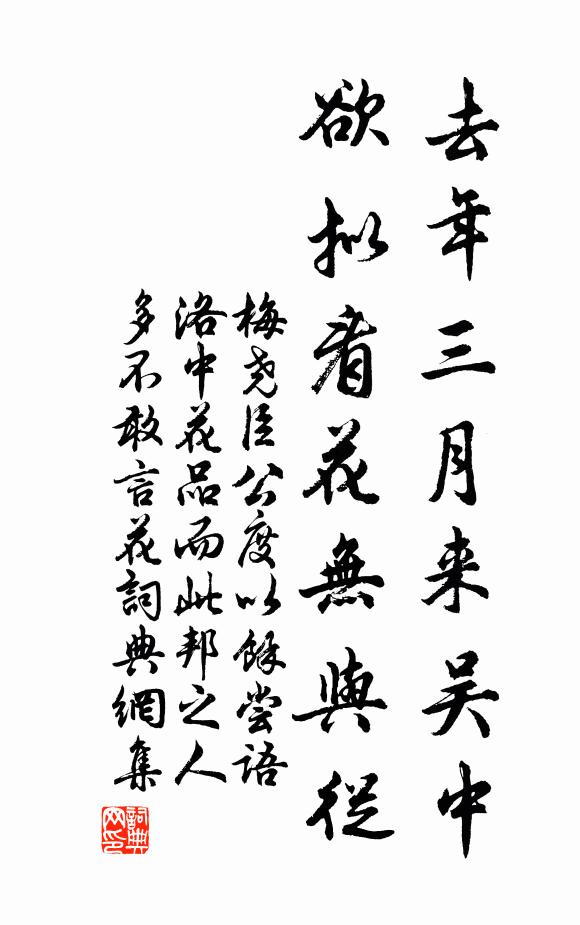 去年三月来吴中
欲拟看花無與從
梅尧臣公度以餘嘗语
洛中花品而此邦之人
多不敢言花詞典網集
詞典网印